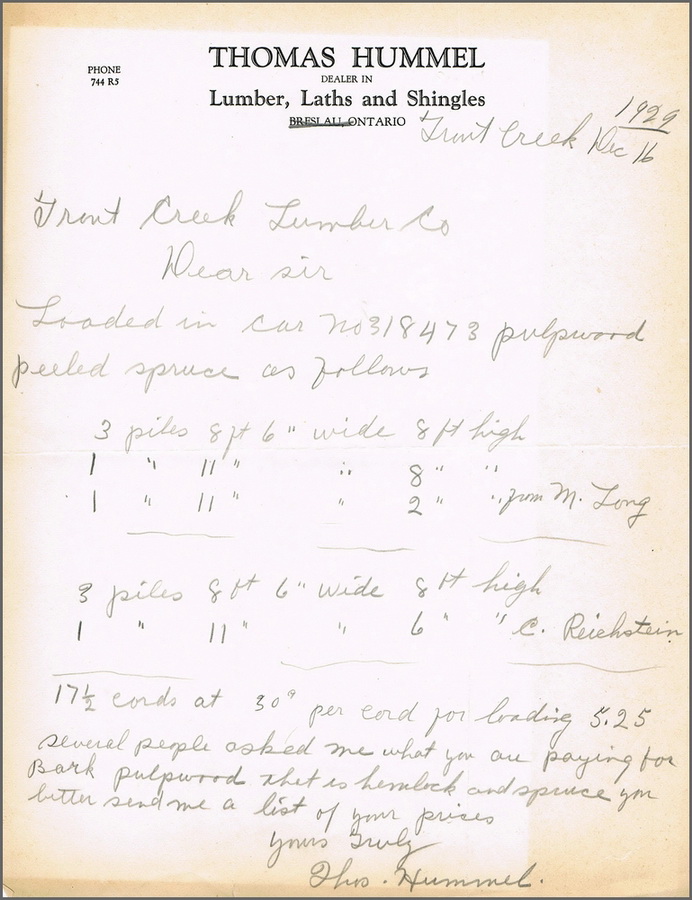 THOMAS HUMMEL
PHONE
744 R5
DEALER IN
Lumber, Laths and Shingles
BRESLAU, ONTARIO
1929
Trout Creek Dec 16
Trout Creek Lumber Co
Dear sir
Loaded in car no 318473 pulpwood
peeled spruce as follows
3 piles 8 ft 6" wide 8 ft high
1 " 11" " 8" "
1 " 11" " 2" " from M. Long
3 piles 8 ft 6" wide 8 ft high
1 " 11" " 6" " C. Reichstein
17½ cords at 30¢ per cord for loading 5.25
several people asked me what you are paying for
Bark pulpwood that is hemlock and spruce you
better send me a list of your prises
yours Truly
Thos. Hummel.